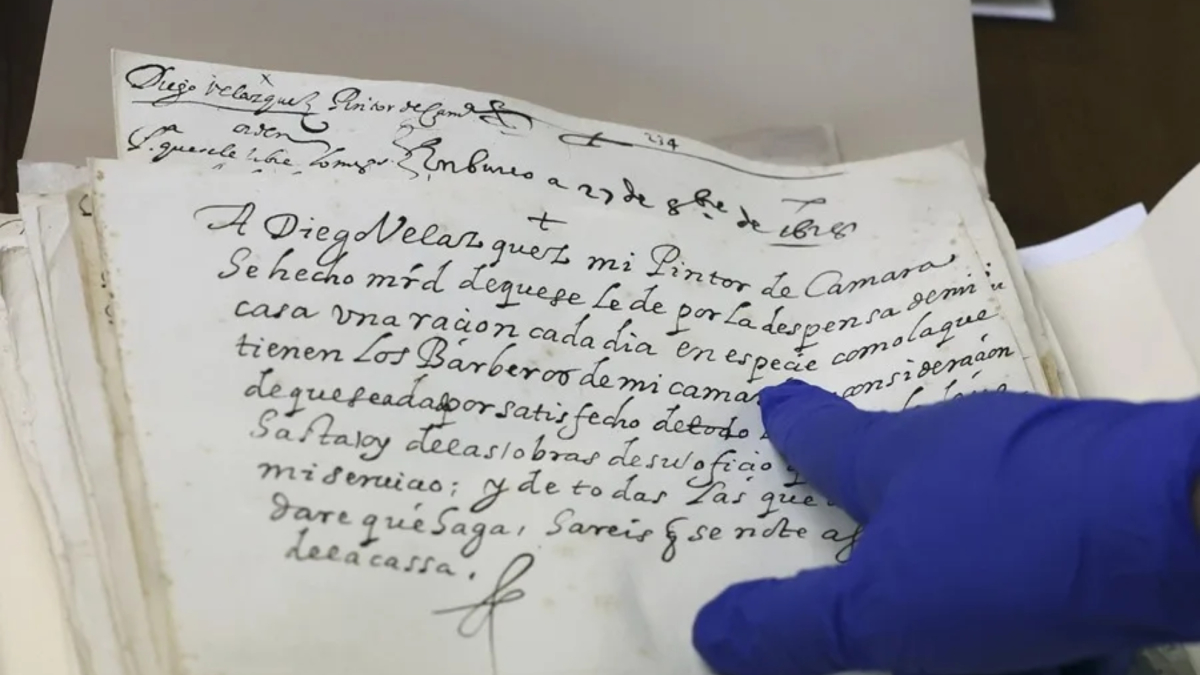 Diego Velazquez Pintor de Cam.ª
234
orden
Pª. que se le libre
En bureo a 27 de 8bre de 1628
A Diego Velazquez mi Pintor de Camara
Se hecho mrd deque se Le de por la despensa demi
casa vna racion cada dia en especie como la que
tienen Los Barberos de mi camar onsideracion
de que se a dado por satisfecho de todo
Sasta oy de las obras de su oficio q
mi seruicio; y de todas Las que
dare que Saga, Sareis q se note as
de la cassa.